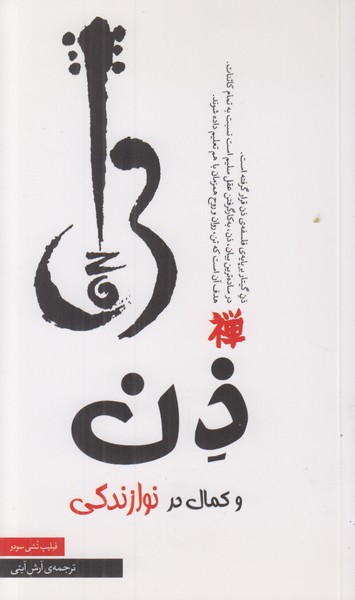 ذنِ گیتار بر پایه‌ی فلسفه‌ی ذن قرار گرفته است.
در ساده‌ترین بیان، ذن، به‌کارگرفتن عقل سلیم است نسبت به تمام کائنات.
هدف آن است که تن، روان و روح همزمان با هم تعلیم داده شوند.
禅
ذِن
و کمال در نوازندگی
فیلیپ تُشی سودو
ترجمه‌ی آرش آیتی